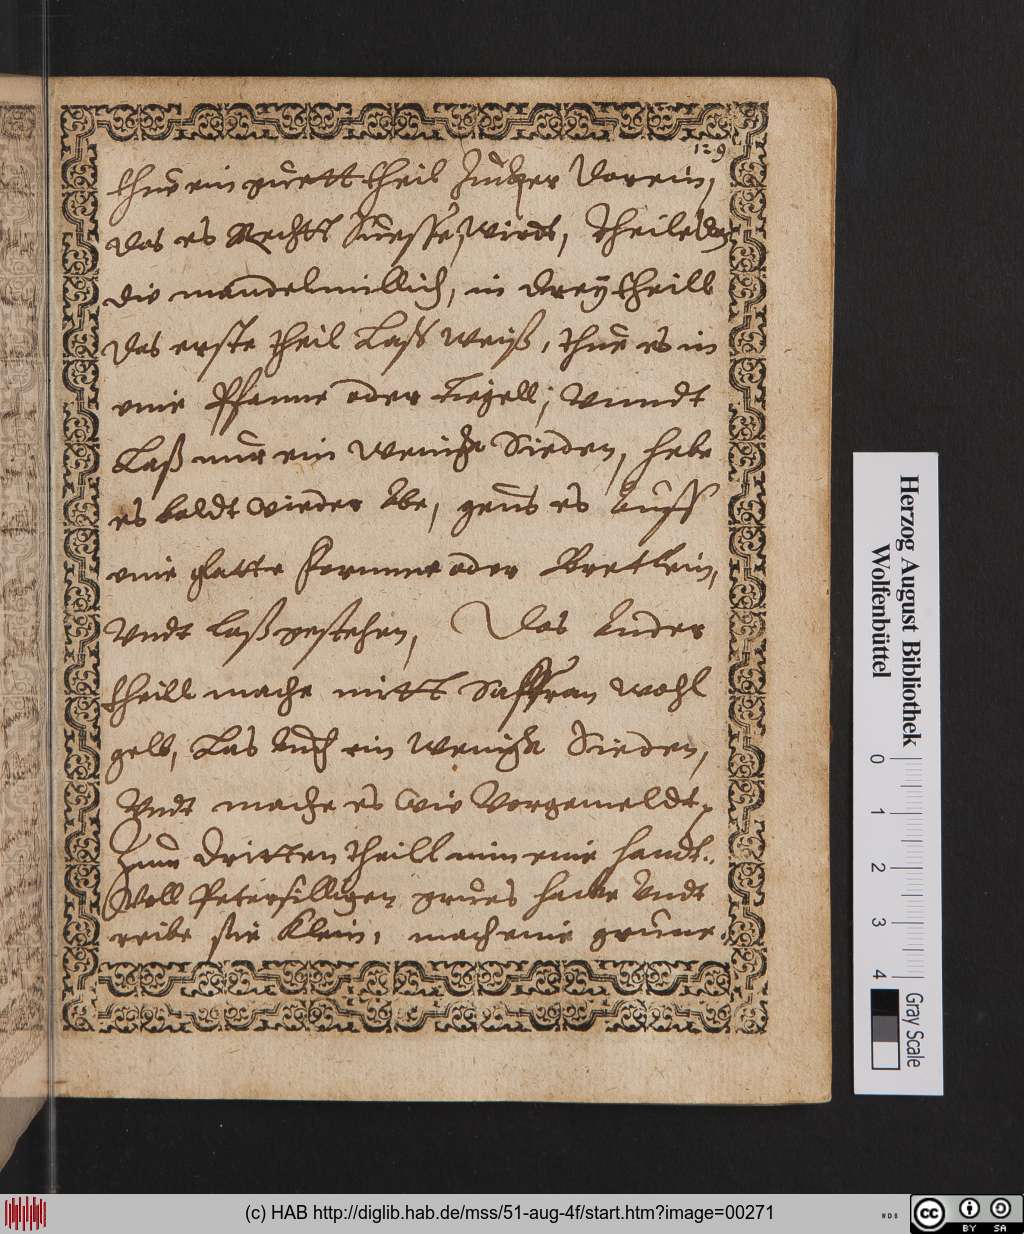 129
thue ein guett theil Zucker darein,
das es Rechtt Suesse wirdt, theile dan
die mandelmillich, in dreÿ theill
das erste theil Laß weiß, thue es in
eine Pfanne oder tiegell, vnndt
Laß nur ein wenigk Sieden, hebe
es baldt wieder Abe, geus es Auff
eine glatte Formme oder Bretlein,
Vndt laß gestehen, Das Ander
theill mache mitt Saffran wohl
gelb, Las Auch ein wenigk Sieden,
Vndt mache es wie Vorgemeldt,
Zum dritten theill nim eine handt
Voll Petersilligen grunes hacke Vndt
reibe sie Klein, mach eine grune
Herzog August Bibliothek
Wolfenbüttel
0 1 2 3 4
Gray Scale
(c) HAB http://diglib.hab.de/mss/51-aug-4f/start.htm?image=00271
WDB
cc BY SA